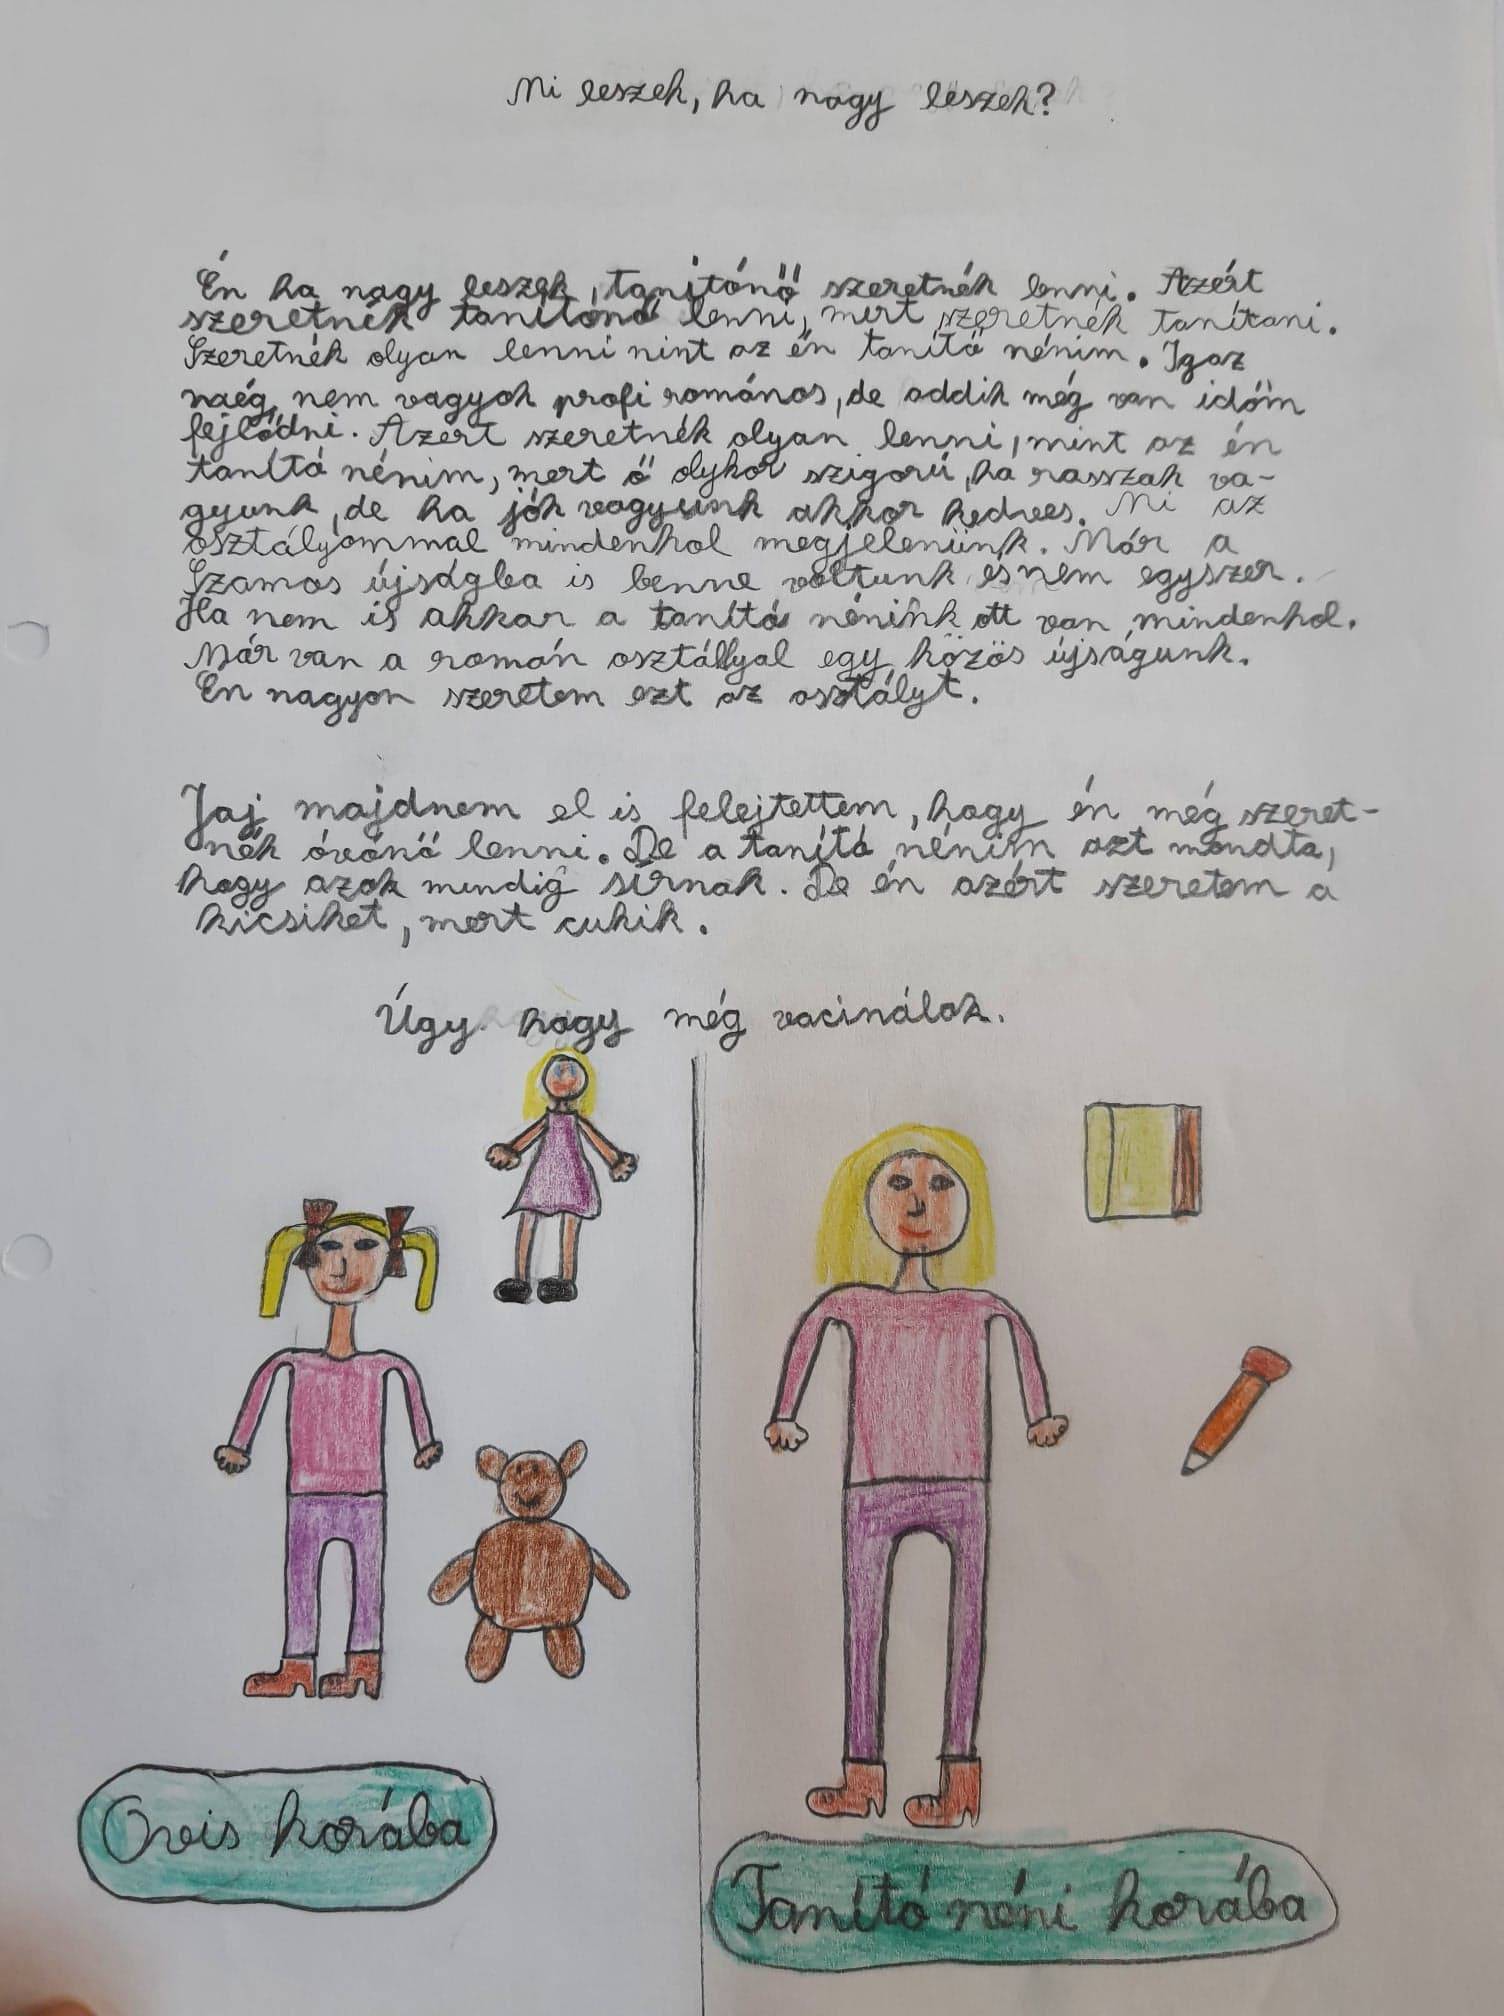 Mi leszek, ha nagy leszek?
Én ha nagy leszek, tanítónő szeretnék lenni. Azért
szeretnék tanítónő lenni, mert szeretnék tanítani.
Szeretnék olyan lenni mint az én tanító nénim. Igaz
még nem vagyok profi romános, de addik még van időm
fejlődni. Azért szeretnék olyan lenni, mint az én
tanító nénim, mert ő olykor szigorú, ha rasszak va-
gyunk, de ha jók vagyunk akkor kedves. Mi az
osztályommal mindenhol megjelenünk. Már a
Szamos újságba is benne voltunk és nem egyszer.
Ha nem is akkar a tanító nénink ott van mindenhol.
Már van a román osztállyal egy közös újságunk.
Én nagyon szeretem ezt az osztályt.
Jaj majdnem el is felejtettem, hogy én még szeret-
nék óvónő lenni. De a tanító nénim azt mondta,
hogy azok mindig sírnak. De én azért szeretem a
kicsiket, mert cukik.
Úgy hogy még vacinálok.
Ovis korába
Tanító néni korába